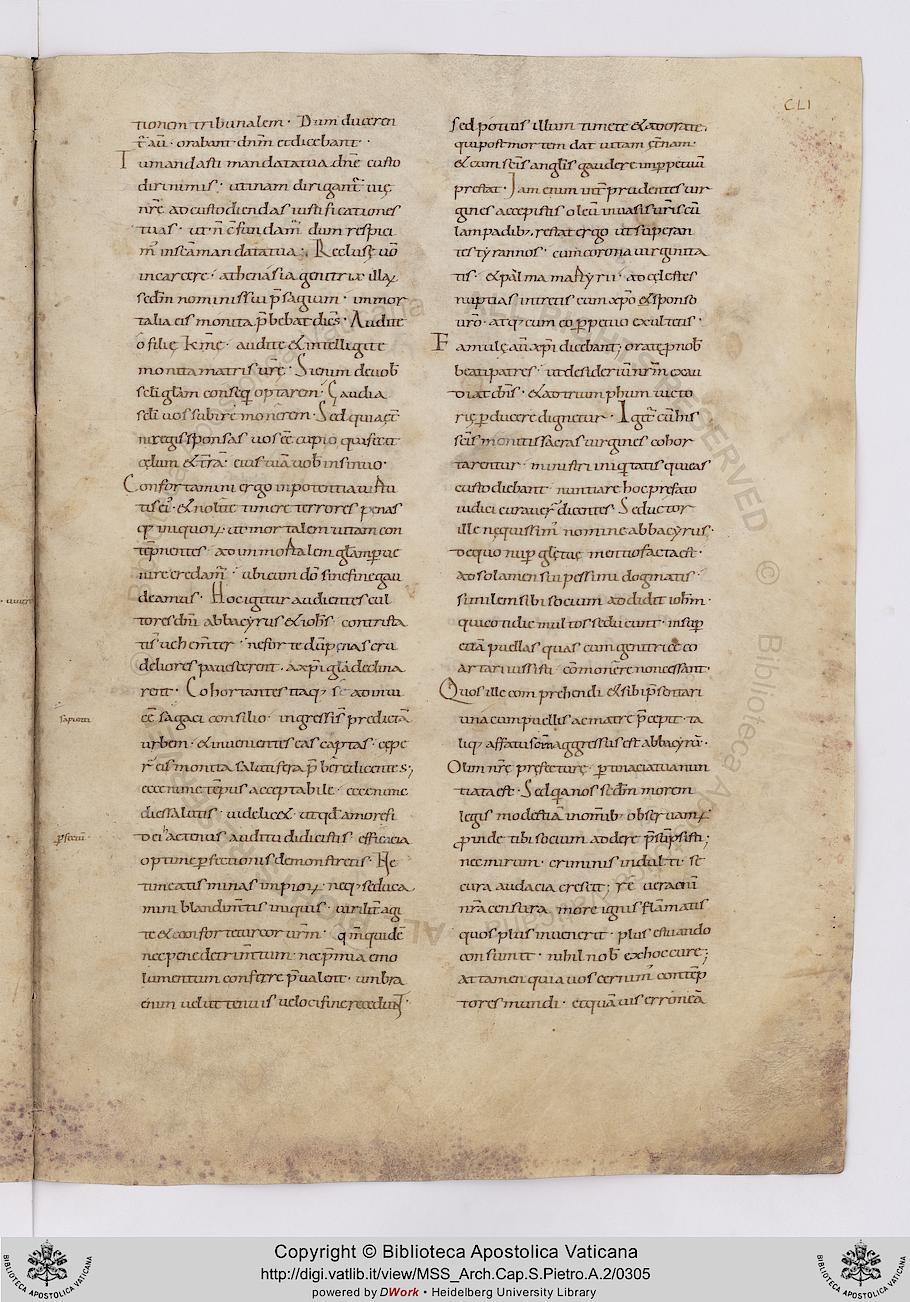 CLI
tionem tribunalem · Dum duceren
t̄ aū · orabant dn̄m et dicebant ·
Tu mandasti mandata tua dn̄e custo
diri nimis · utinam dirigant̄ uię
nr̄ę ad custodiendas iustificationes
tuas · ut n̄ c̄fundam̄ dum respici
m̄ in s̄c̄a mandata tua ; Recluse ū
in carcere · athenasia genitrix illaꝝ
sed̄m nominis sui p̄sagium · immor
talia eis monita p̄bebat dic̄s · Audite
o filię kīmę · audite & intelligite
monita matris ur̄ę · Si enim de uob̄
scl̄i gl̄am conseq̄ optarem · Gaudia
scl̄i uos subire monerem · Sed quia et̄
ni regis sponsas uos ēē cupio qui fecit
cęlum & t̄ra · eius uiā uob̄ insinuo ·
Confortamini ergo in potentia uirtu
tis ei᾽ · & nolite timere terrores penas
q; iniquoꝝ · ut mortalem uitam con
tēpnentes · ad inmortalem gl̄am ꝑue
nire credam̄ · ubi cum dō sine fine gau
deamus · Hoc igitur audientes cul
tores dn̄i abbacyrus & ioh̄s · contrista
ti s̄ uehem̄ter · ne forte dū pęnas cru
deliores pauescerent · a xp̄i gl̄a declina
rent · Cohortantes itaq; se ad inui
cē sagaci consilio · ingressi s̄ predictā
urbem · & inuenientes eas captas · cępe
r̄ eis monita salutifera p̄bere dicentes ;
ecce nunc tēpus acceptabile · ecce nunc
dies salutis · uidelicet ut qd̄ amore si
dei actenus auditu didicistis · efficacia
optime ꝑfectionis demonstretis · Ne
timeatis minas impioꝝ · neq; seduca
mini blandim̄tis iniquis · uirilit̄ agi
te & confortetur cor ur̄m · qm̄ quidē
nec penę detrim̄tum · nec p̄mia emo
lumentum conferre p̄ualent · umbra
enim uelut tenuis ueloci fine recedunt ·
sed potius illum timete & adorate ·
qui post mortem dat uitam et̄nam ·
& cum sc̄is angl̄is gaudere in ꝑpetuū
prestat · Iam enim int̄ prudentes uir
gines accepistis oleū in uasis ur̄is cū
lampadib; restat ergo ut superan
tes tyrannos · cum corona uirginita
tis · & palma martyrii · ad cęlestes
nuptias intretis cum xp̄o & sponso
ur̄o · atq; cum eo ꝑpetuo exultetis ·
Famulę aū xp̄i dicebant ; orate p̄ nob̄
beati patres · ut desideriū nr̄m exau
diat dn̄s · & ad triumphum uicto
rię ꝑducere dignetur · Igit̄ cū his
sc̄is monitis sacras uirgines cohor
tarentur · ministri iniq̄tatis qui eas
custodiebant nuntiare hoc prefato
iudici curauer̄ dicentes · Seductor
ille nequissim̄ nomine abbacyrus ·
de quo nup̄ gl̄ę tuę mentio facta est ·
ad solamen sui pessimi dogmatis ·
similem sibi socium addidit ioh̄m ·
qui cotidie multos seducunt · insup̄
etiā puellas quas cum genitrice co
artari iussisti · cōmonere non cessant ·
Quos ille comprehendi & sibi p̄sentari
una cum puellis ac matre p̄cepit · ta
liq; affatu s̄ aggressus est abbacyrū ·
Olim nr̄ę prefecturę ꝑtinacia tua nun
tiata est · Sed q̄a nos sed̄m morem
legis modestiā in om̄ib; obseruam᾽
ꝑinde tibi socium addere p̄sūpsisti ;
nec mirum · criminis indulti se
cura audacia crescit ; re uera eni᾽
nr̄a censura more ignis flam̄atis
quos plus inuenerit · plus estuando
consumit · nihil nob̄ ex hoc cure ;
attamen quia uos cernim᾽ contēp
tores mundi · et quāuis erroneā
sapienti
ꝑfectū
Copyright © Biblioteca Apostolica Vaticana
http://digi.vatlib.it/view/MSS_Arch.Cap.S.Pietro.A.2/0305
powered by DWork • Heidelberg University Library
BIBLIOTECA APOSTOLICA VATICANA
BIBLIOTECA APOSTOLICA VATICANA